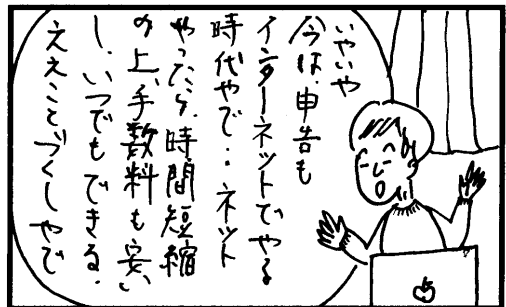 いやいや
今は、申告も
インターネットでやる
時代やで‥ネット
やったら、時間短縮
の上、手数料も安い
し、いつでもできる.
ええことづくしやで